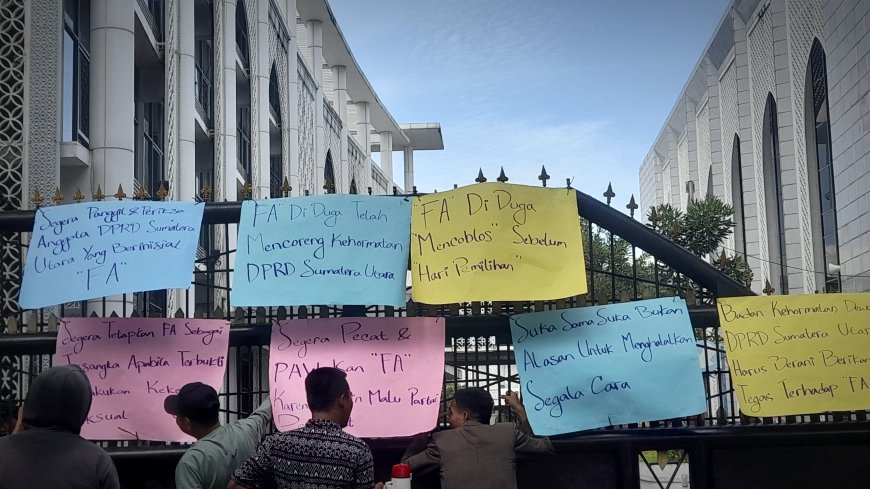 Segera Panggil & Periksa
Anggota DPRD Sumatera
Utara Yang Berinisial
"FA"
"FA" Di Duga Telah
Mencoreng Kehormatan
DPRD Sumatera Utara
"FA" Di Duga
"Mencoblos" Sebelum
"Hari Pemilihan"
Segera Tetapkan FA Sebagai
Apabila Terbukti
sual
Segera Pecat &
PAW kan "FA"
Karen Malu Partai
Suka Sama Suka Bukan
Alasan Untuk Menghalalkan
Segala Cara
Badan Kehormatan, Dew
DPRD Sumatera Utara
Harus Berani Berikan
Tegas Terhadap "FA